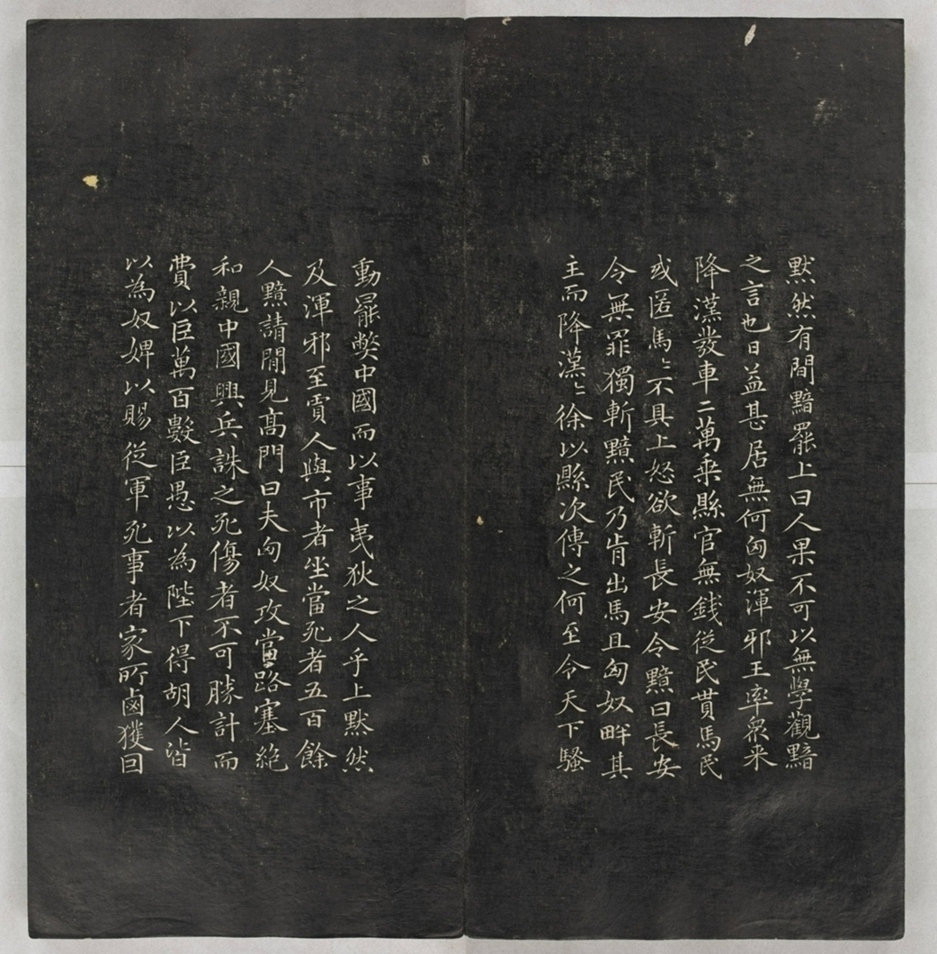 默然有間黯罷上曰人果不可以無學觀黯
之言也日益甚居無何匈奴渾邪王率衆来
降漢發車二萬乘縣官無銭從民貰馬民
或匿馬〻不具上怒欲斬長安令黯曰長安
令無罪獨斬黯民乃肯出馬且匈奴畔其
主而降漢〻徐以縣次傳之何至令天下騷
動罷弊中國而以事夷狄之人乎上默然
及渾邪至賈人與市者坐當死者五百餘
人黯請閒見髙門曰夫匈奴攻當路塞絶
和親中國興兵誅之死傷者不可勝計而
費以巨萬百數臣愚以為陛下得胡人皆
以為奴婢以賜從軍死事者家所鹵獲因